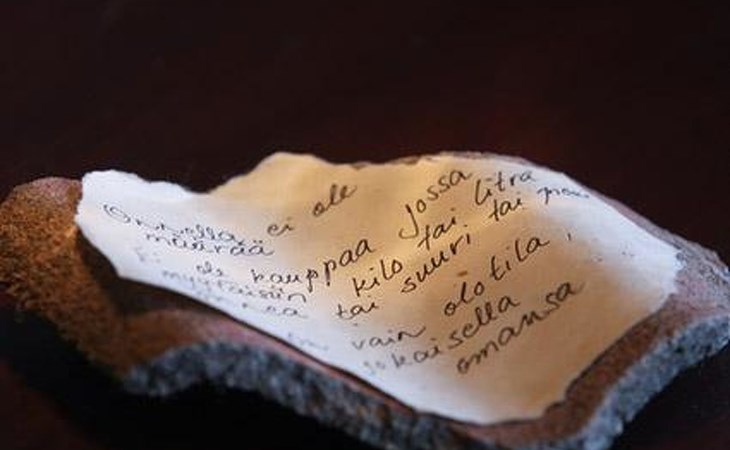 Onnella ei ole
määrää
Ei ole kauppaa jossa
myytäisiin kilo tai litra
onnea tai suuri tai
on vain olotila,
jokaisella
omansa